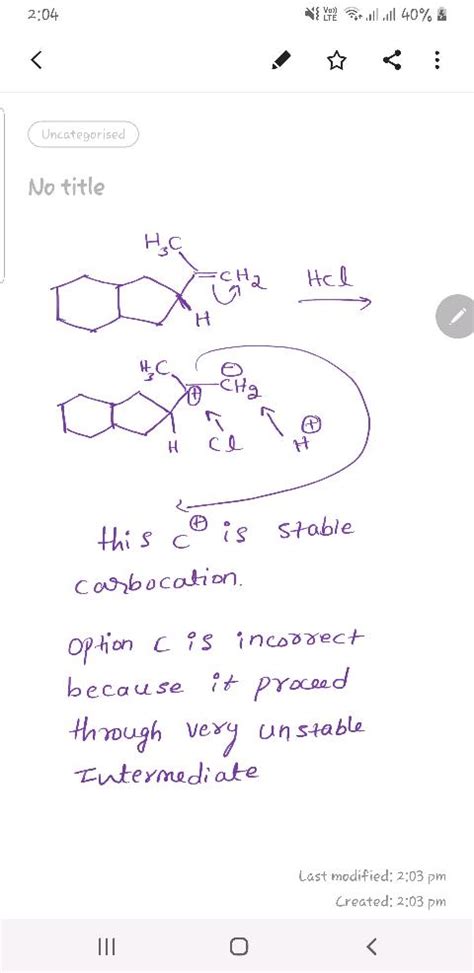 2:04
Vo))
LTE
40%
Uncategorised
No title
H₃C
=CH₂
HCl
H
H₃C
⊖
⊕
-CH₂
H
Cl
⊕
H
this C⊕ is stable
carbocation.
option C is incorrect
because it proceed
through very unstable
Intermediate
Last modified: 2:03 pm
Created: 2:03 pm